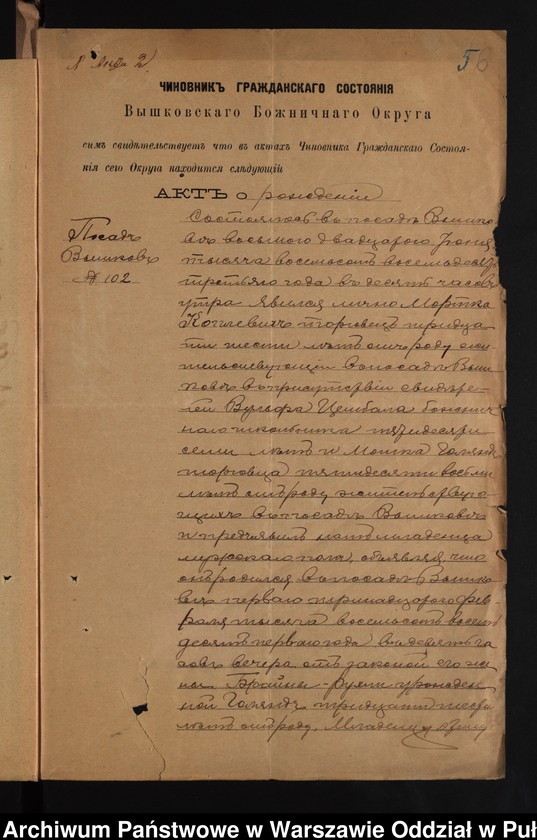 56
ЧИНОВНИКЪ ГРАЖДАНСКАГО СОСТОЯНІЯ
Вышковскаго Божничнаго Округа
симъ свидѣтельствуетъ что въ актахъ Чиновника Гражданскаго Состоя-
нія сего Округа находится слѣдующій
АКТЪ о рожденіи
Посадъ
Вышковъ
№ 102
Состоялось въ посадѣ Вышко-
вѣ восьмого двадцатого Іюня
тысяча восемьсотъ восемьдесятъ
третьяго года въ десять часовъ
утра явился лично Мортка
торговецъ тридца-
ти шести лѣтъ отъ роду жи-
тельствующій въ посадѣ Выш-
ковѣ въ присутствіи свидѣте-
лей Вульфа Цембала божнич-
наго школьника пятидесяти
семи лѣтъ и Мошка Голянд
торговца пятидесяти восьми
лѣтъ отъ роду жительствую-
щихъ въ посадѣ Вышковѣ
и предъявилъ намъ младенца
мужескаго пола, объявляя, что
онъ родился въ посадѣ Вышко-
вѣ перваго тринадцатого Фев-
раля тысяча восемьсотъ восемь
десятъ перваго года въ девять ча-
совъ вечера отъ законной его же-
ны урожден-
ной Голяндъ тридцати шести
лѣтъ отъ роду. Младенцу
Archiwum Państwowe w Warszawie Oddział w Puł